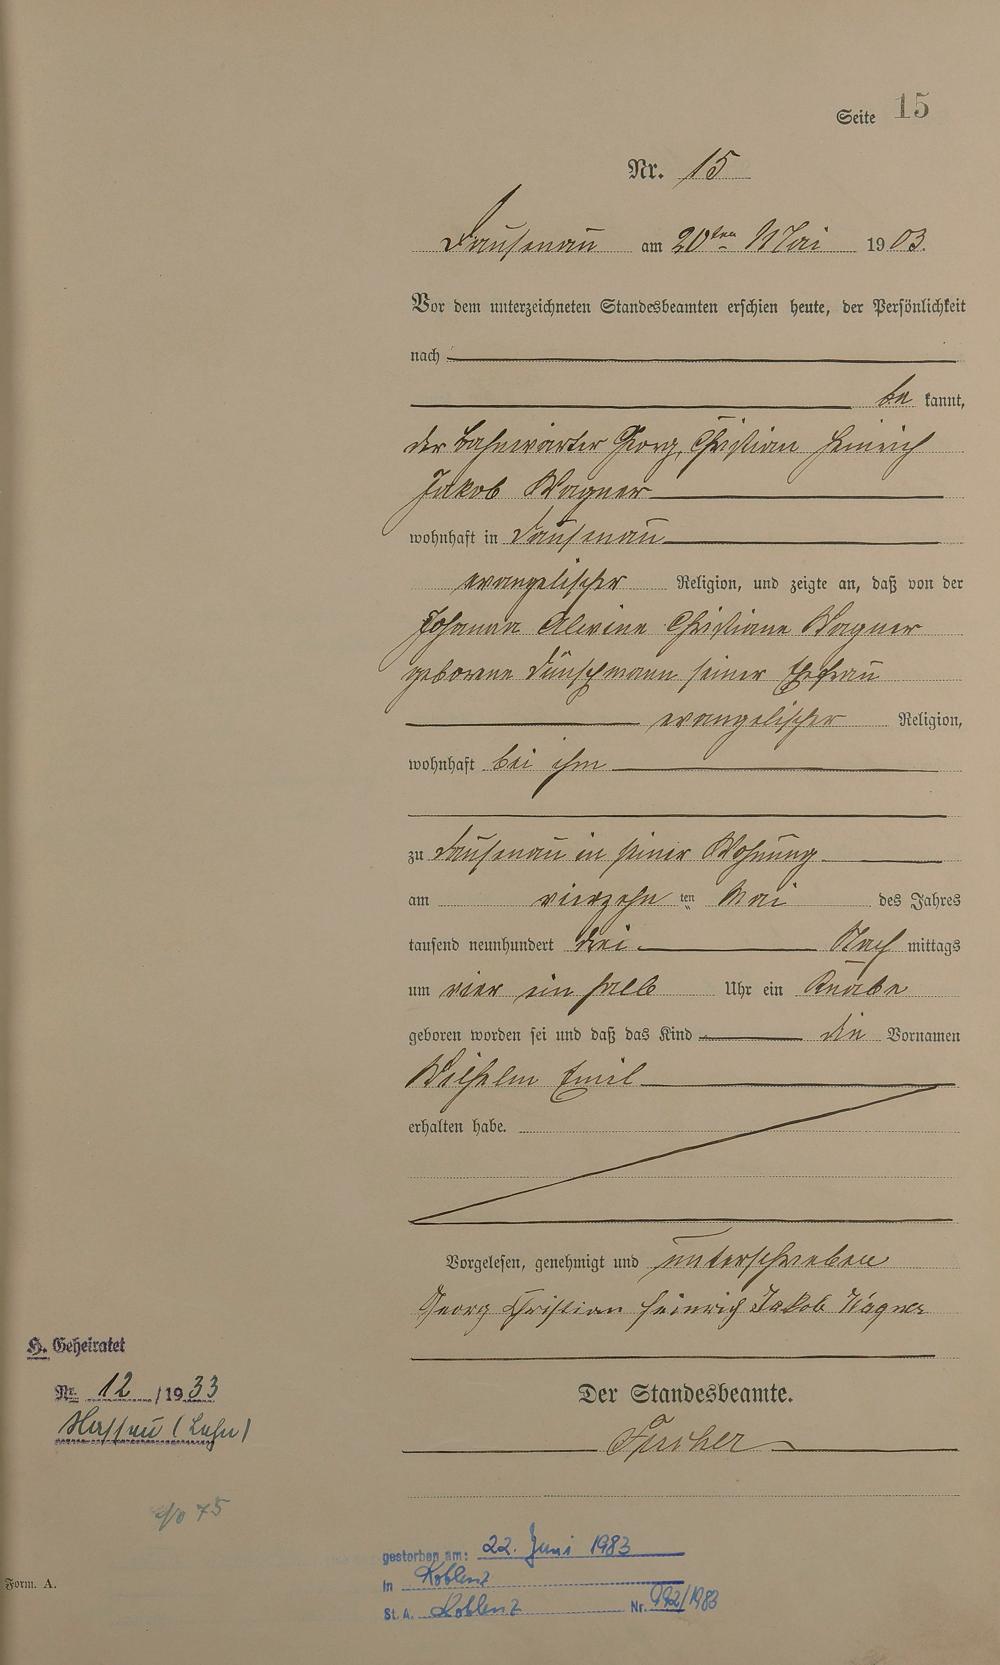 Seite 15
Nr. 15
Dausenau am 20ten Mai 1903.
Vor dem unterzeichneten Standesbeamten erschien heute, der Persönlichkeit
nach
be kannt,
der Bahnwärter Georg Christian Heinrich
Jakob Wagner
wohnhaft in Dausenau
evangelischer Religion, und zeigte an, daß von der
Johanna Alwine Christiane Wagner
geborene Dünschmann seiner Ehefrau
evangelischer Religion,
wohnhaft bei ihm
zu Dausenau in seiner Wohnung
am vierzehn ten Mai des Jahres
tausend neunhundert drei Nach mittags
um vier ein halb Uhr ein Knabe
geboren worden sei und daß das Kind die Vornamen
Wilhelm Emil
erhalten habe.
Vorgelesen, genehmigt und unterschrieben
Georg Christian Heinrich Jakob Wagner
H. Geheiratet
Nr. 12 /1933
Nassau (Lahn)
Der Standesbeamte.
75
gestorben am: 22. Juni 1983
in Koblenz
St. A. Koblenz Nr. 992/1983
Form. A.